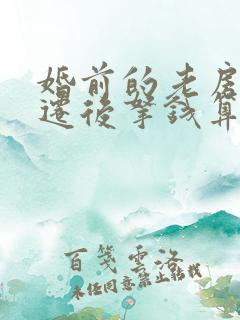 婚前的老房
还后筝钱算
百笺云洛
未经同意禁止转载